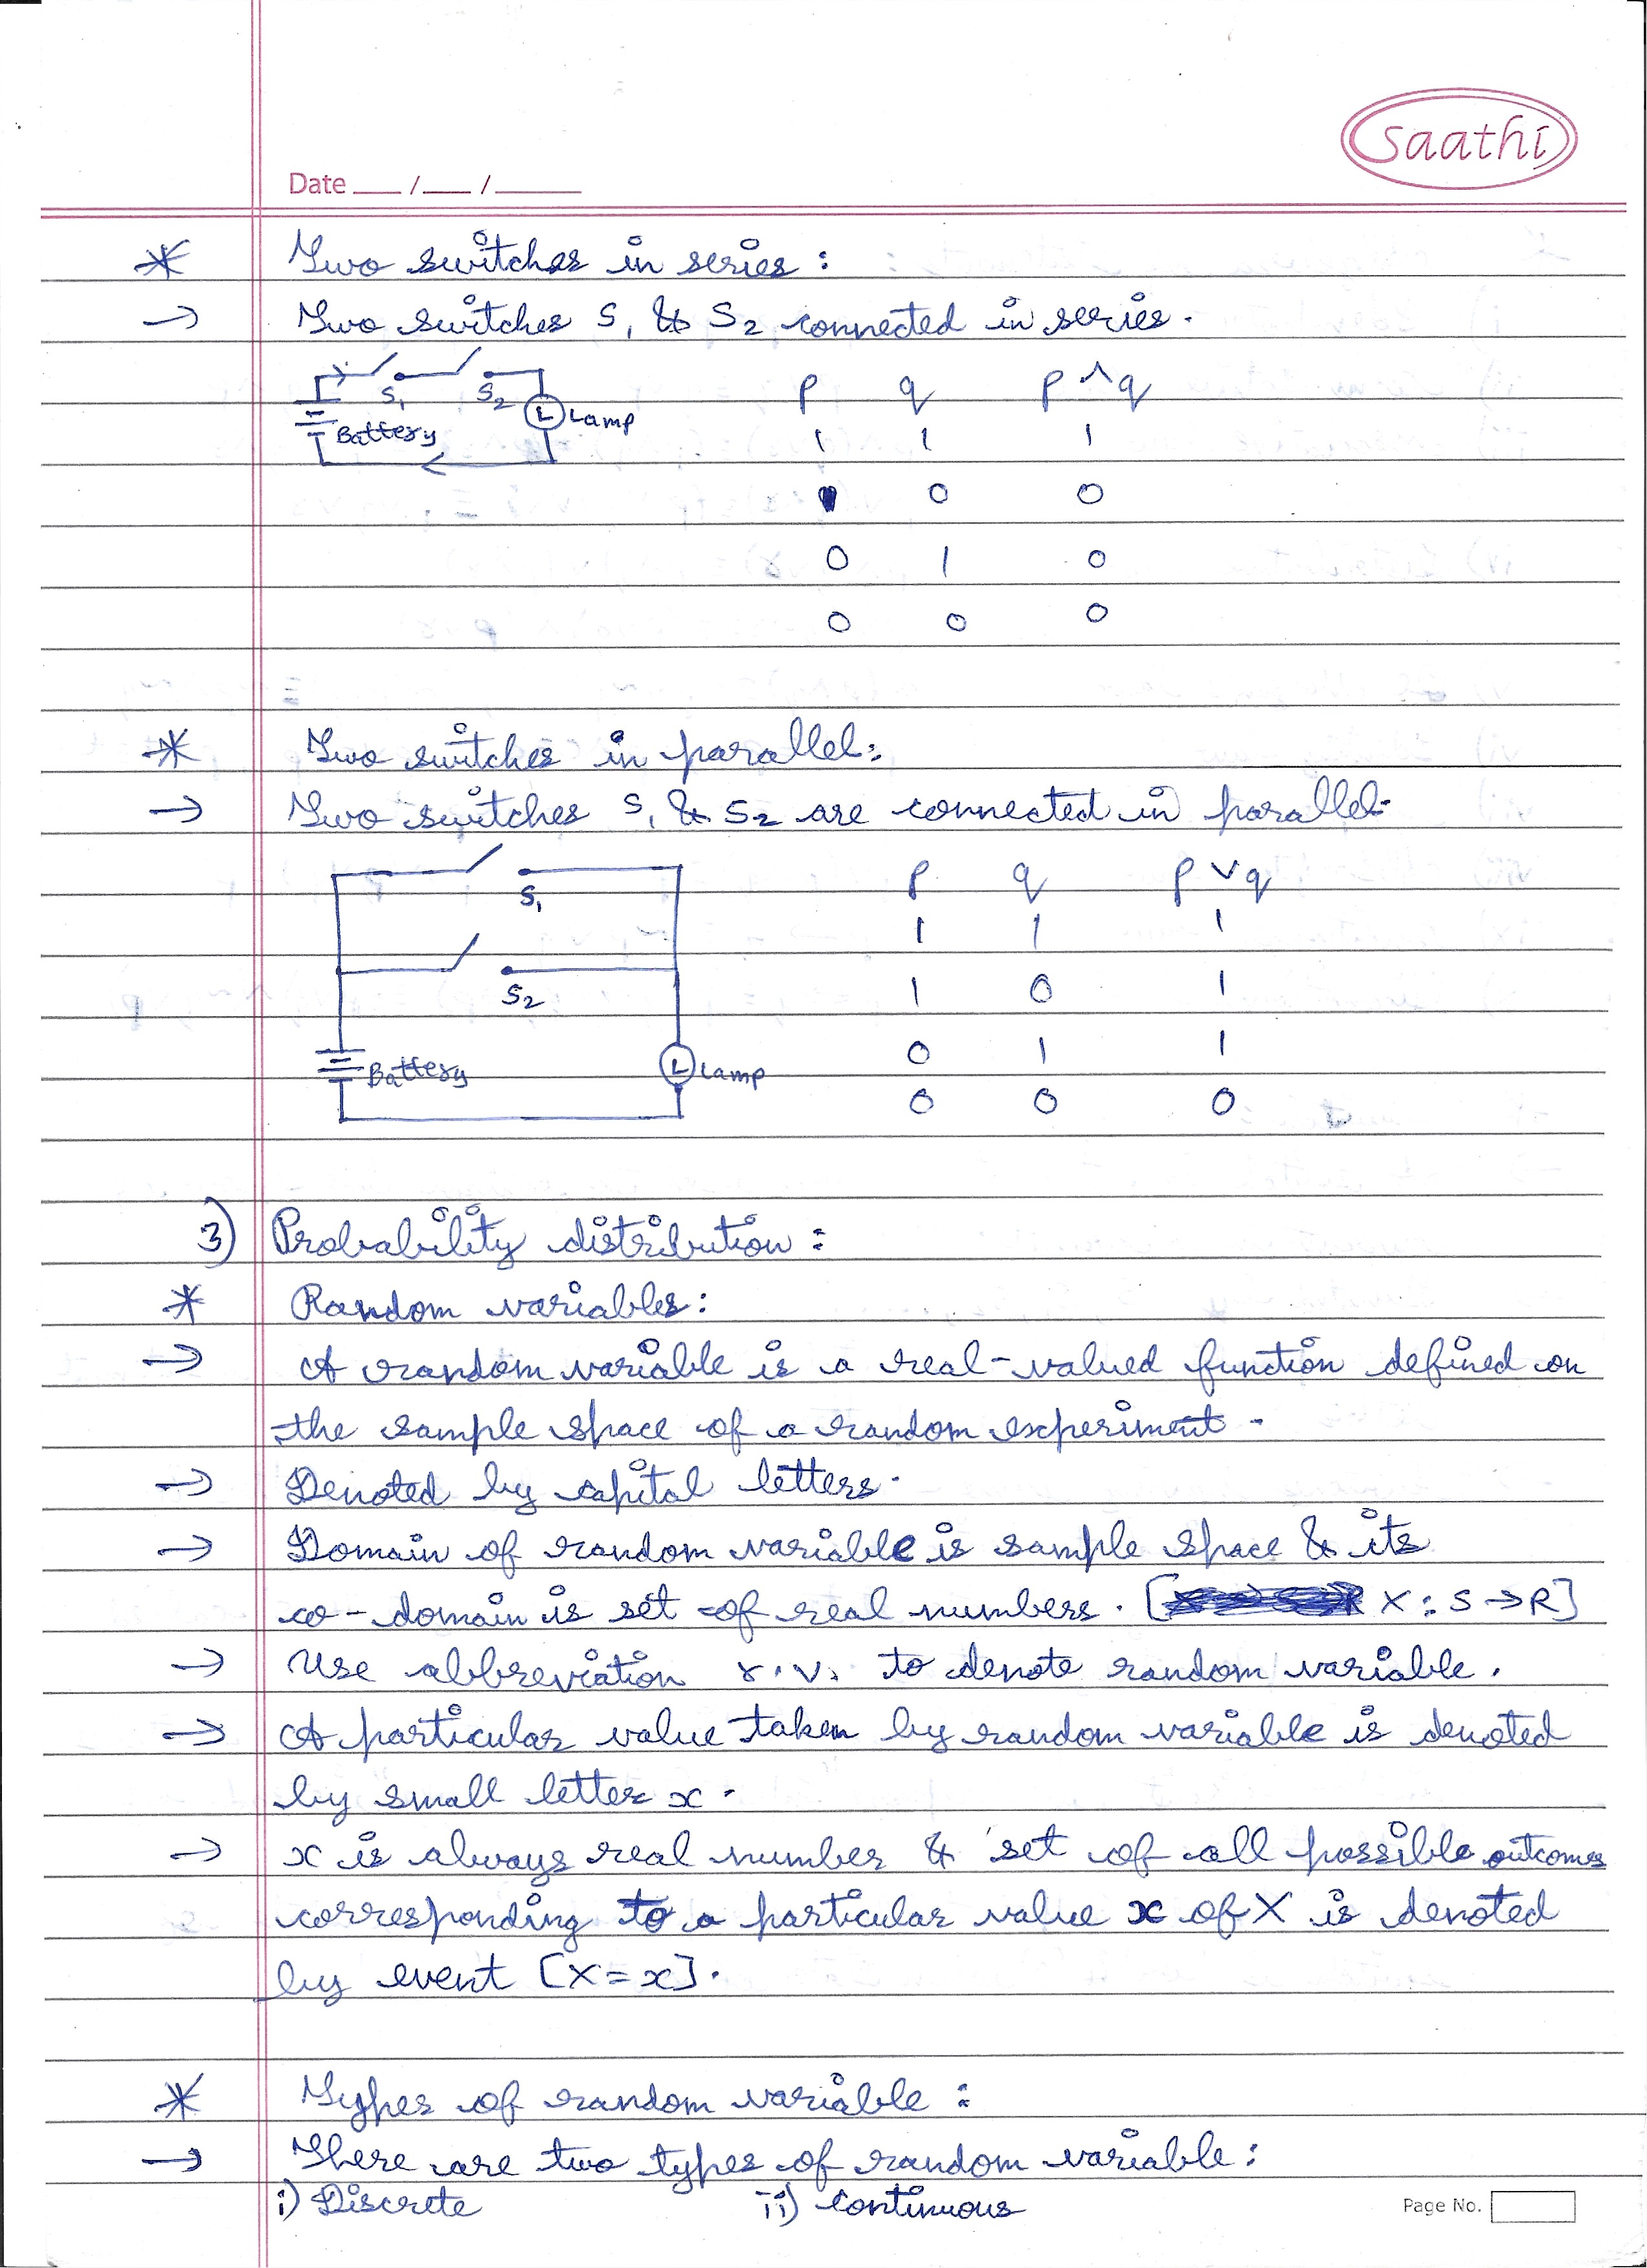 Saathi
Date ___/___/_____
* Two switches in series :
→ Two switches S₁ & S₂ connected in series.
S₁ S₂ L Lamp
Battery
p q p ∧ q
1 1 1
0 0
0 1 0
0 0 0
* Two switches in parallel:
→ Two switches S₁ & S₂ are connected in parallel.
S₁
S₂
Battery L Lamp
p q p ∨ q
1 1 1
1 0 1
0 1 1
0 0 0
3) Probability distribution :
* Random variables:
→ A random variable is a real-valued function defined on
the sample space of a random experiment.
→ Denoted by capital letters.
→ Domain of random variable is sample space & its
co-domain is set of real numbers. [X : S → R]
→ Use abbreviation r.v. to denote random variable.
→ A particular value taken by random variable is denoted
by small letter x.
→ x is always real number & set of all possible outcomes
corresponding to a particular value x of X is denoted
by event [X = x].
* Types of random variable :
→ There are two types of random variable :
i) Discrete ii) Continuous
Page No.